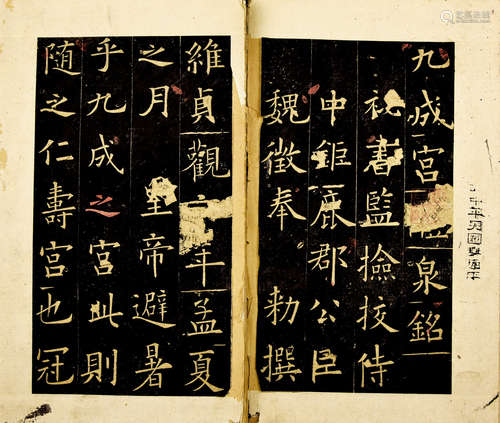 九成宮泉銘
秘書監撿挍侍
中鉅鹿郡公臣
魏徵奉勑撰
維貞觀年孟夏
之月皇帝避暑
乎九成之宮此則
隨之仁壽宮也冠